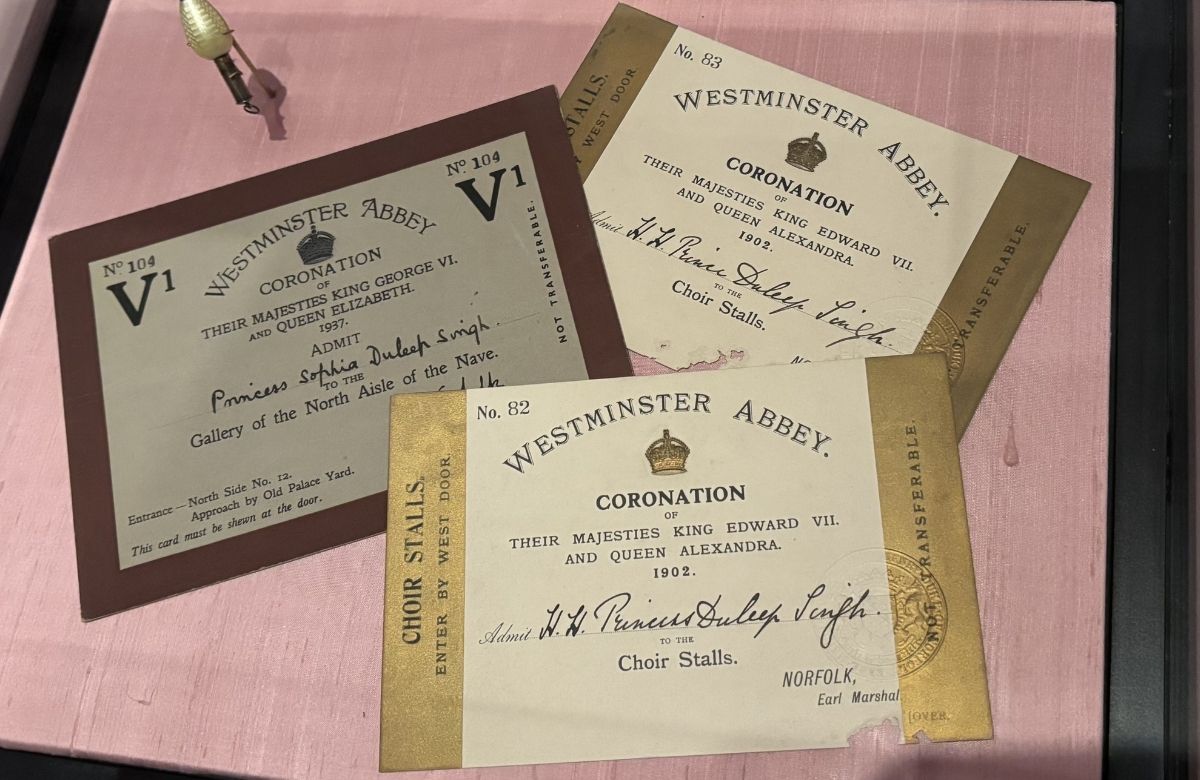 Nº 104
V1
Nº 104
V1
WESTMINSTER ABBEY
CORONATION
OF
THEIR MAJESTIES KING GEORGE VI.
AND QUEEN ELIZABETH.
1937.
ADMIT
Princess Sophia Duleep Singh.
TO THE
Gallery of the North Aisle of the Nave.
Entrance—North Side No. 12.
Approach by Old Palace Yard.
This card must be shewn at the door.
NOT TRANSFERABLE.
STALLS.
WEST DOOR
No. 83
WESTMINSTER ABBEY.
CORONATION
OF
THEIR MAJESTIES KING EDWARD VII.
AND QUEEN ALEXANDRA.
1902.
Admit H.H. Prince Duleep Singh.
TO THE
Choir Stalls.
TRANSFERABLE.
CHOIR STALLS.
ENTER BY WEST DOOR.
No. 82
WESTMINSTER ABBEY.
CORONATION
OF
THEIR MAJESTIES KING EDWARD VII.
AND QUEEN ALEXANDRA.
1902.
Admit H.H. Princess Duleep Singh.
TO THE
Choir Stalls.
NORFOLK,
Earl Marshal
[OVER.
NOT TRANSFERABLE.